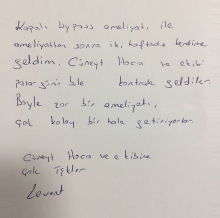 Kapalı bypass ameliyatı ile
ameliyattan sonra ilk haftada kendime
geldim. Cüneyt Hoca ve ekibi
pazar günü bile kontrole geldiler.
Böyle zor bir ameliyatı,
çok kolay bir hale getiriyorlar.
Cüneyt Hoca ve ekibine
çok teşkler
Levent